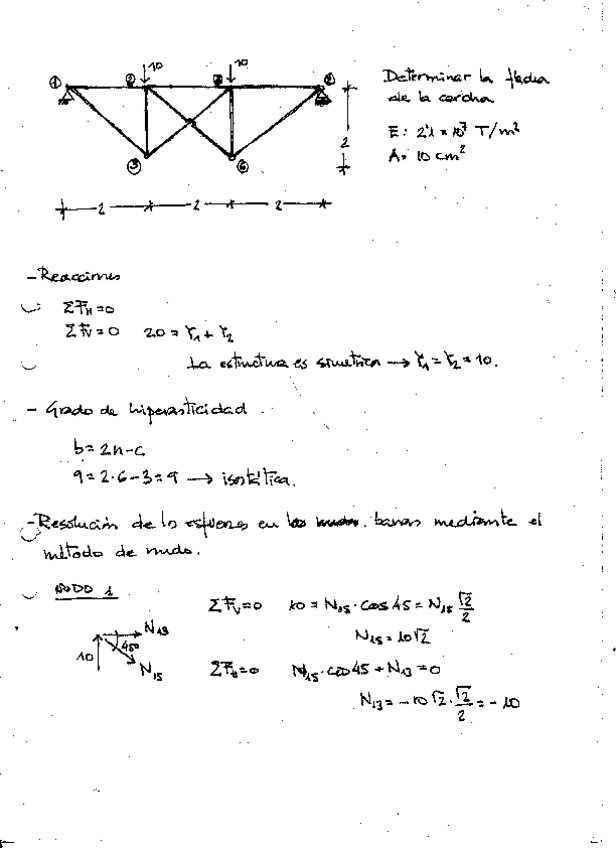 10 10
① ② ③ ②
⑤ ⑥
2
2 2 2
Determinar la flecha
de la cercha
E: 2'1 × 10⁷ T/m²
A: 10 cm²
- Reacciones
ΣF_H = 0
ΣF_V = 0 20 = Y₁ + Y₂
La estructura es simétrica → Y₁ = Y₂ = 10.
- Grado de hiperasticidad
b = 2n - c
9 = 2·6 - 3 = 9 → isostática.
- Resolución de los esfuerzos en las barras mediante el
método de nudo.
NODO 1
ΣF_V = 0 10 = N₁₅ · cos 45 = N₁₅ √2/2
N₁₅ = 10√2
N₁₃
45º
10
N₁₅
ΣF_H = 0 N₁₅ · cos 45 + N₁₃ = 0
N₁₃ = -10√2 · √2/2 = -10